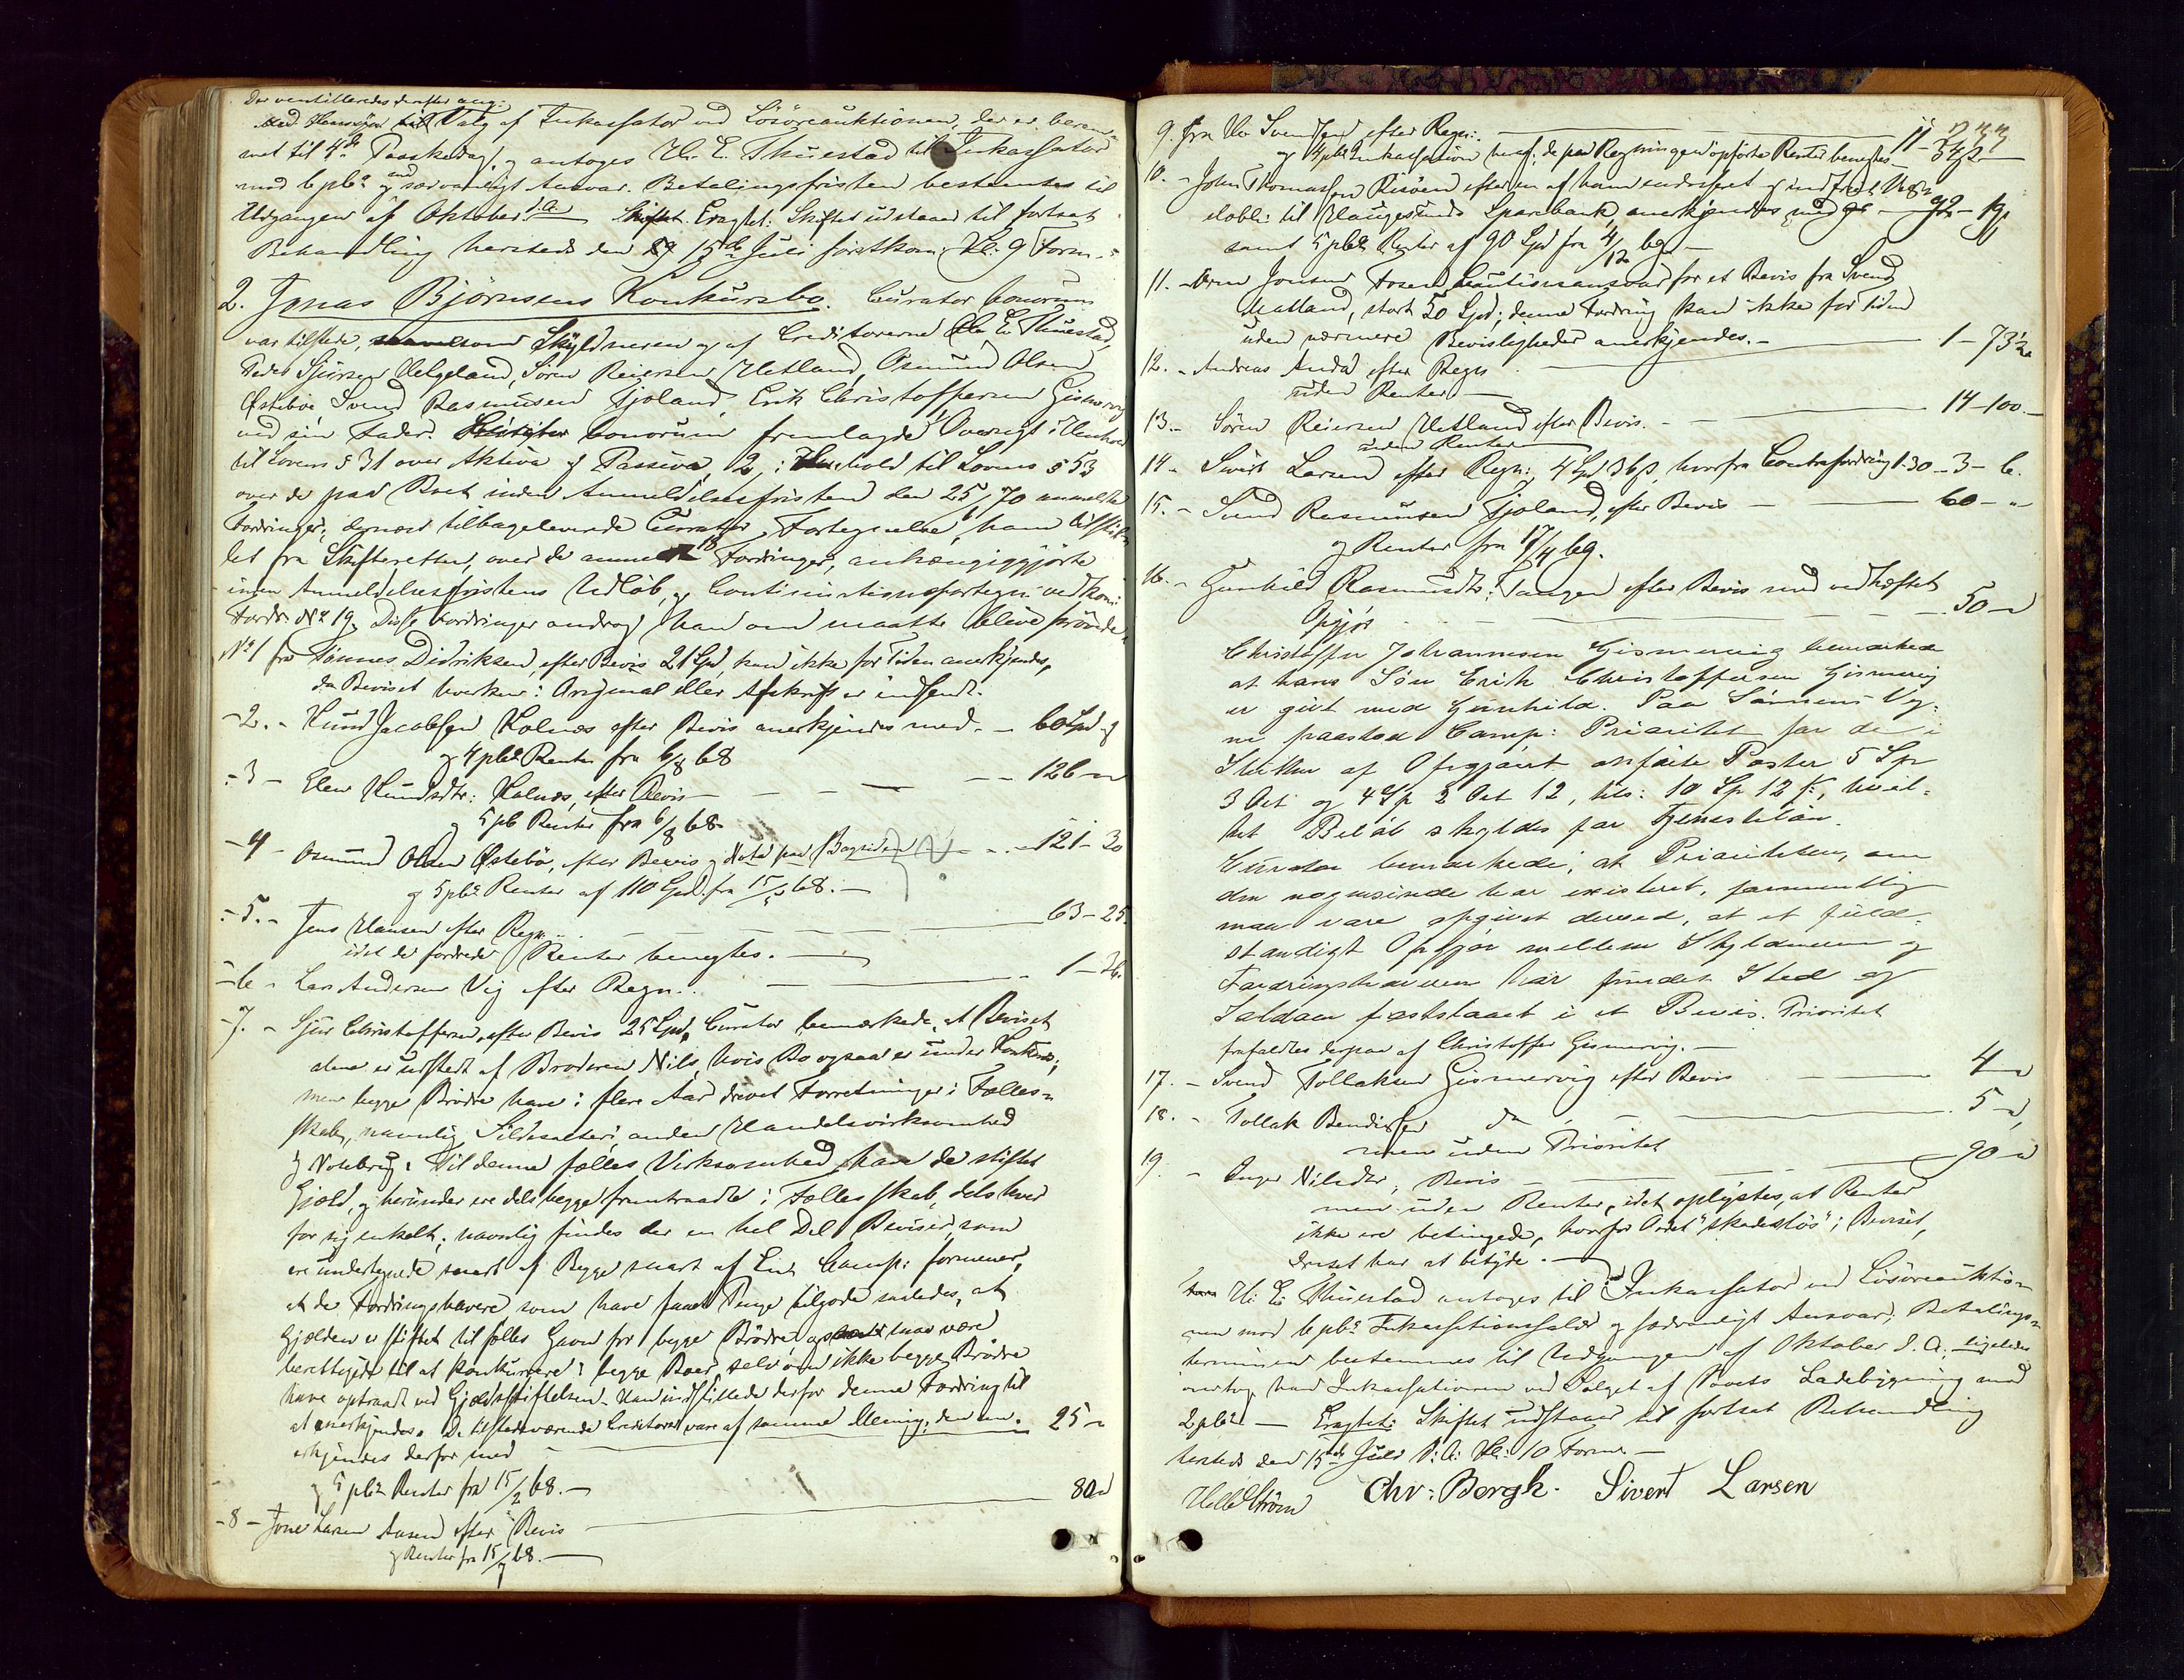 Der ventilleredes derefter ang:
Valg af Inkassator ved Lösöreauktionen, der er beram-
met til 4de Paaskedag, og antoges Hr. E. Thuestad til Inkassator
mod 6 pCt og sædvanligt Ansvar. Betalingsfristen bestemtes til
Udgangen af Oktober d.A. Eragtet: Skiftet udstaaer til fortsat
Behandling hersteds den 15de Juli førstkom: Kl. 9 Form.
2. Jonas Bjørnsens Konkursbo. Curator bonorum
var tilstede, Skyldneren og af Creditorerne Hr E. Thuestad,
Peder Sjursen Helgeland, Sören Reiersen Hetland, Osmund Olsen
Østebö, Svend Rasmusen Fjoland, Erik Christoffersen Gismervig
ved sin Fader. bonorum fremlagde Oversigt i Henhold
til Lovens § 31 over Aktiva og Passiva, 2, i Henhold til Lovens § 53
over de paa Boet inden Anmeldelsesfristen den 25/ 70 anmeldte
Fordringer, dernæst tilbageleverede Curator Fortegnelse, ham tilstil-
let fra Skifteretten, over de anmeldte 18 Fordringer, anhængiggjorte
inden Anmeldelsesfristens Udløb, og Continuationsfortegn: vedkom:
Fordr. No 19. Disse Fordringer androg han om maatte blive prövede.
No 1 fra Tønnes Didriksen, efter Bevis 21 Spd, kan ikke for Tiden anerkjendes,
da Beviset hverken i Original eller Afskrift er indsendt.
- 2. - Knud Jacobsen Kolnes efter Bevis anerkjendes med - 60 Spd
og 4 pCt Renter fra 6/8 68
- 3 - Elen Knudsdtr: Kolnes, efter Bevis - - - 126 - "
og 5 pCt Renter fra 6/8 68
- 4 - Osmund Olsen Østebö, efter Bevis og Nota paa Bagsiden - 121 - 30
og 5 pCt Renter af 110 Spd. fra 15/ 68. -
- 5. - Jens Hansen efter Regn. - 63 - 25
idet de fordrede Renter benegtes.
- 6 - Lars Andersen Vig efter Regn.. - 1 - 26.
- 7. - Sjur Christoffersen, efter Bevis 25 Spd. Curator bemærkede, at Beviset
alene er udstedt af Broderen Nils, hvis Bo ogsaa er under Konkurs;
men begge Brödre have i flere Aar drevet Forretninger i Fælles-
skab, navnlig Sildesalteri, anden Handelsvirksomhed
og Notebrug. Til denne fælles Virksomhed have de stiftet
Gjæld, og herunder ere dels begge fremtraadte i Fællesskab, dels hver
for sig enkelt; navnlig findes der en hel Del Beviser, som
ere undertegnede snart af Begge snart af En. Comp: formener,
at de Fordringshavere som have Penge tilgode saaledes, at
Gjælden er stiftet til fælles Gavn for begge Brödre, maa være
berettigede til at konkurrere i begge Boer, selv om ikke begge Brödre
have optraadt ved Gjældsstiftelsen. Han indstillede derfor denne Fordring til
at anerkjendes. De tilstedeværende Creditorer vare af samme Mening; den an- 25 -
erkjendes derfor med
og 5 pCt Renter fra 15/2 68. -
- 8 - Tore Larsen Aasen efter Bevis - 80 "
og Renter fra 15/ 68. -
233
9. fra Ole Svendsen efter Regn: - 11 - 34½
og 4 pCt Inkassation heraf; de paa Regningen opførte Renter benegtes
10. - John Thomassen Risöen efter en af ham endosseret og indfriet Vexel-
obl: til Haugesunds Sparebank, anerkjendes med - 92 - 19
samt 5 pCt Renter af 90 Spd fra 4/12 69 -
11. - Jonsen Fosen Cautionsansvar for et Bevis fra Svend
Matland, stort 50 Spd; denne Fordring kan ikke for Tiden
uden nærmere Bevisligheder anerkjendes. -
12. - Andreas Anda efter Regn. - 1 - 73½
uden Renter -
13. - Sören Reiersen Hetland efter Bevis. - 14 - 100.
uden Renter
14 - Sivert Larsen efter Regn: 4 Spd 36 ß, hvorfra Contrafordring 1-30 - 3 - 6.
15. - Svend Rasmusen Fjoland, efter Bevis - 60 - "
og Renter fra 17/4 69.
16. - Gunhild Rasmusdtr: Tangen efter Bevis med vedhæftet
Opgjör - 50 -
Christoffer Johannesen Gismervig bemærkede
at hans Sön Erik Christoffersen Gismervig
er gift med Gunhild. Paa Sønnens Veg-
ne paastod Comp: Prioritet for de i
Slutten af Opgjöret anförte Poster 5 Sp
3 Ort og 4 Sp 2 Ort 12, tils: 10 Sp 12 ß, hvil-
ket Belöb skyldes for Tjenestelön.
Curator bemærkede, at Prioriteten, om
den nogensinde har existeret, formentlig
maa være opgivet derved, at et fuld-
stændigt Opgjör mellem Skyldneren og
Fordringshaveren har fundet Sted og
Saldoen fastslaaet i et Bevis. Prioritet
frafaldtes derpaa af Christoffer Gismervig. -
17. - Svend Tollaksen Gismervig efter Bevis - 4 - "
18. - Tollak Bendixsen do - 5 - "
men uden Prioritet
19. - Inger Nilsdtr, Bevis - 90 - "
men uden Renter, idet oplystes, at Renter
ikke ere betingede, hvorfor Ordet "skadeslös" i Beviset,
derset har at betyde. -
Hr. E. Thuestad antoges til Inkassator ved Lösöreauktio-
nen mod 6 pCt Inkassationssalær og sædvanligt Ansvar; Betalings-
terminen bestemmes til Udgangen af Oktober d. A. ligeledes
overtog han Inkassationen ved Salget af Boets Ladebygning mod
2 pCt - Eragtet: Skiftet udstaaer til fortsat Behandling
hersteds den 15de Juli d. A. Kl: 10 Form -
Chr: Bergh. Sivert Larsen